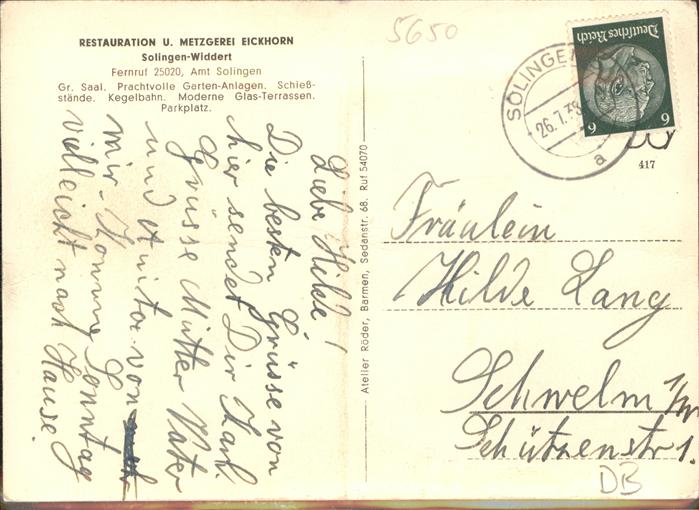 RESTAURATION U. METZGEREI EICKHORN
Solingen-Widdert
Fernruf 25020, Amt Solingen
Gr. Saal. Prachtvolle Garten-Anlagen. Schieß-
stände. Kegelbahn. Moderne Glas-Terrassen.
Parkplatz.
5650
Deutsches Reich
6 6
SOLINGEN
26.7.38
a
417
Liebe Hilde!
Die besten Grüsse von
hier sendet Dir Karl.
Grüsse Mutter Vater
und von
mir. Komme Sonntag
vielleicht nach Hause.
Atelier Röder, Barmen, Sedanstr. 68. Ruf 54070
Fräulein
Hilde Lang
Schwelm i/W
Schützenstr 1.
DB